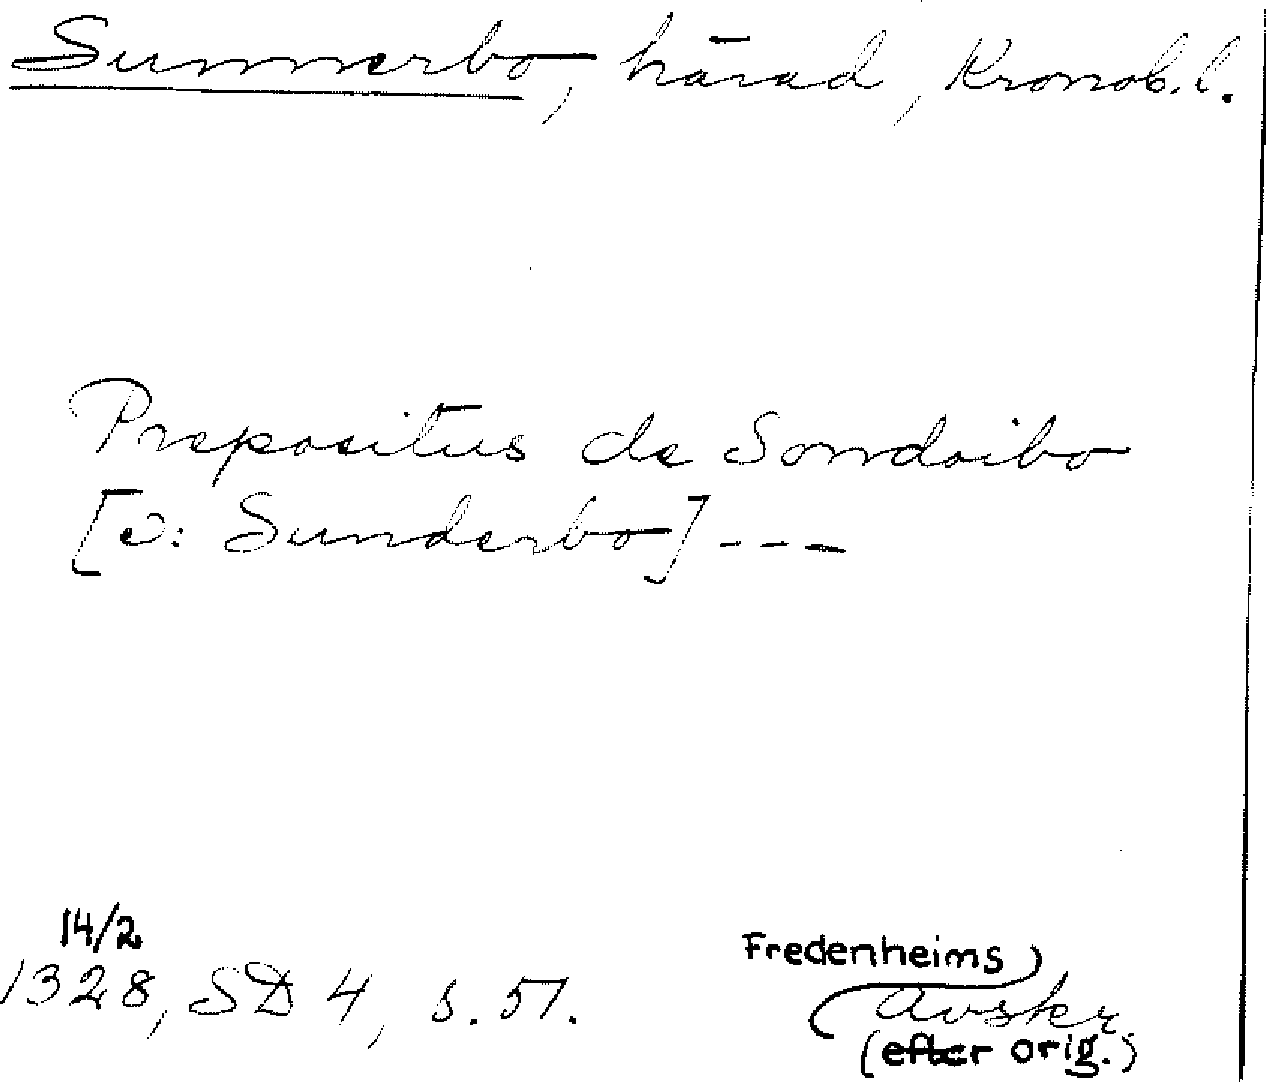 Sunnerbo, härad, Kronob. l.
Prepositus de Sondoibo
[ɔ: Sunderbo] - - -
14/2
1328, SD 4, s. 51.
Fredenheims
avskr.
(efter orig.)